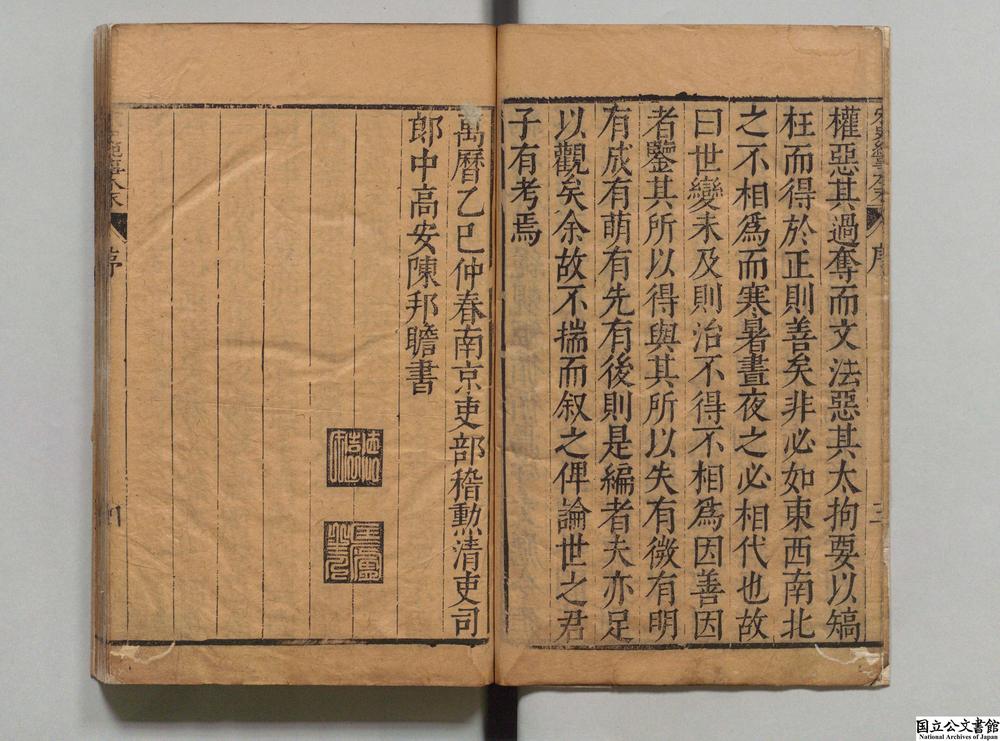 權惡其過奪而文法惡其太拘要以矯
枉而得於正則善矣非必如東西南北
之不相爲而寒暑晝夜之必相代也故
曰世變未及則治不得不相爲因善因
者鑒其所以得與其所以失有微有明
有成有萌有先有後則是編者夫亦足
以觀矣余故不揣而叙之俾論世之君
子有考焉
序
三
萬曆乙巳仲春南京吏部稽勲清吏司
郎中高安陳邦瞻書
序
四
国立公文書館
National Archives of Japan